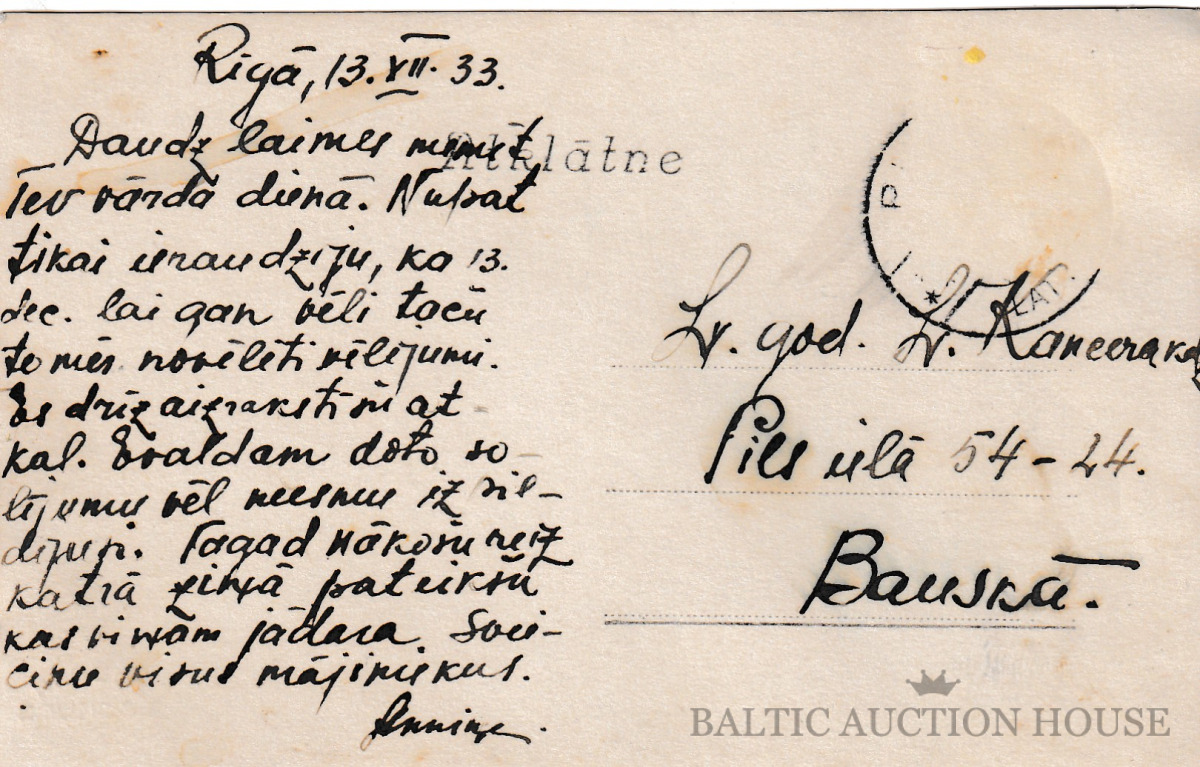 Rīgā, 13. XII. 33.
Daudz laimes
Tev vārda dienā. Nupat
tikai ieraudzīju, ka 13.
dec. lai gan vēli taču
tomēr novēlēti vēlējumi.
Es drīz aizrakstīšu at
kal. Evaldam doto so-
lījumu vēl neesmu izpil-
dījusi. Tagad nākošu reiz
katrā ziņā pateikšu
kas viņam jādara. Svei-
cinu visus mājiniekus.
Atklātne
LAT
Ļv. god. Kanceera kdz
Pils ielā 54-24.
Bauskā.
BALTIC AUCTION HOUSE